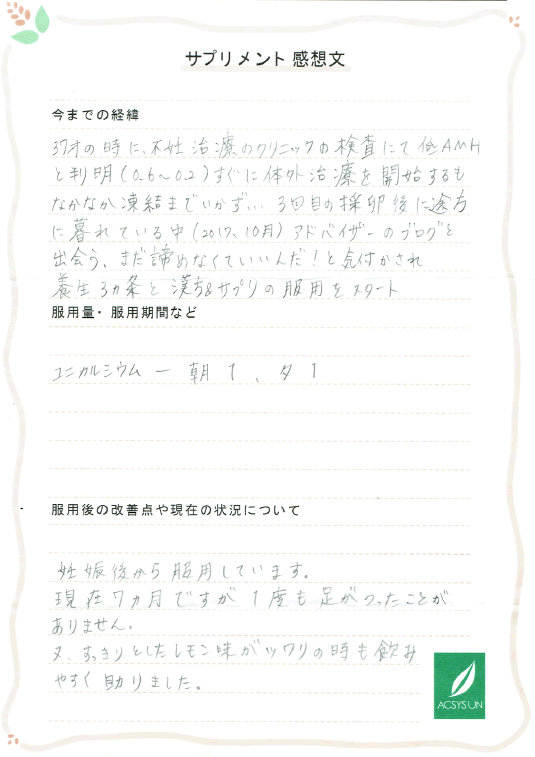 サプリメント 感想文
今までの経緯
37才の時に、不妊治療のクリニックの検査にて低AMH
と判明(0.6〜0.2)すぐに体外治療を開始するも
なかなか凍結までいかず… 3回目の採卵後に途方
に暮れている中(2017、10月)アドバイザーのブログと
出会う、まだ諦めなくていいんだ!と気付かされ
養生3カ条と漢方&サプリの服用をスタート
服用量・服用期間など
ユニカルシウム ー 朝1、夕1
服用後の改善点や現在の状況について
妊娠後から服用しています。
現在7カ月ですが1度も足がつったことが
ありません。
又、すっきりとしたレモン味がツワリの時も飲み
やすく助りました。
ACSYSUN